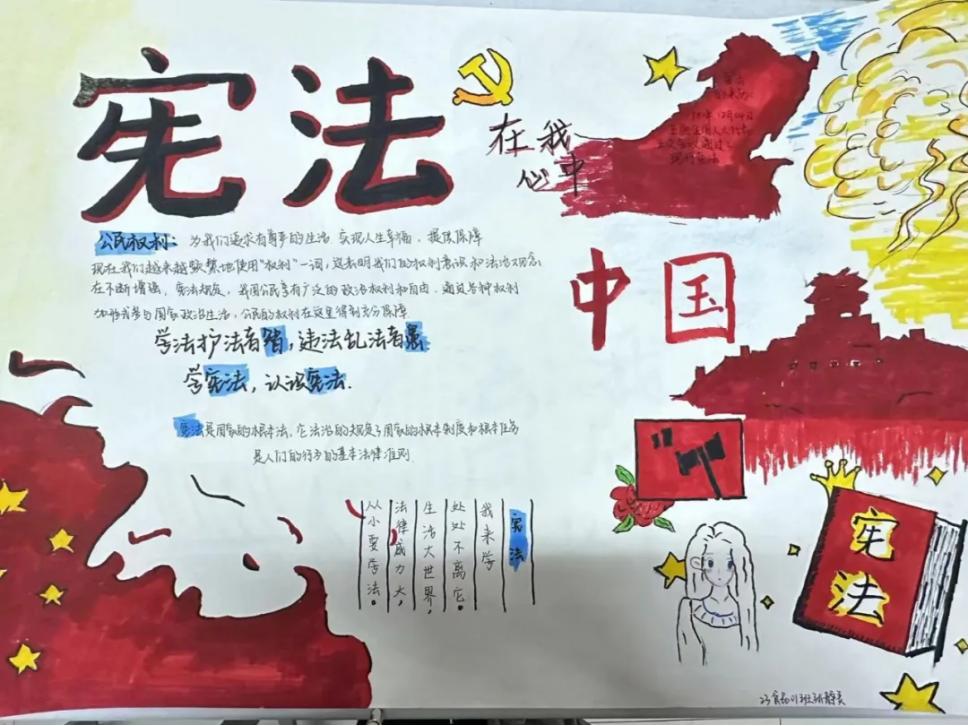 宪法
在我
心中
12月04日
现行宪法
公民权利：为我们追求有尊严的生活、实现人生幸福、提供保障
现在我们越来越频繁地使用"权利"一词，这表明我们的权利意识和法治观念
在不断增强，宪法规定，我国公民享有广泛的政治权利和自由，通过各种权利
参与国家政治生活，公民的权利在这里得到充分保障
学法护法者智，违法乱法者愚
学宪法，认该宪法.
宪法是国家的根本法，它法治的规定了国家的根本制度和根本任务
是人们的行为的基本法律准则.
中国
宪法
我来学
处处不离它。
生活大世界，
法律威力大，
从小要学法。
宪法